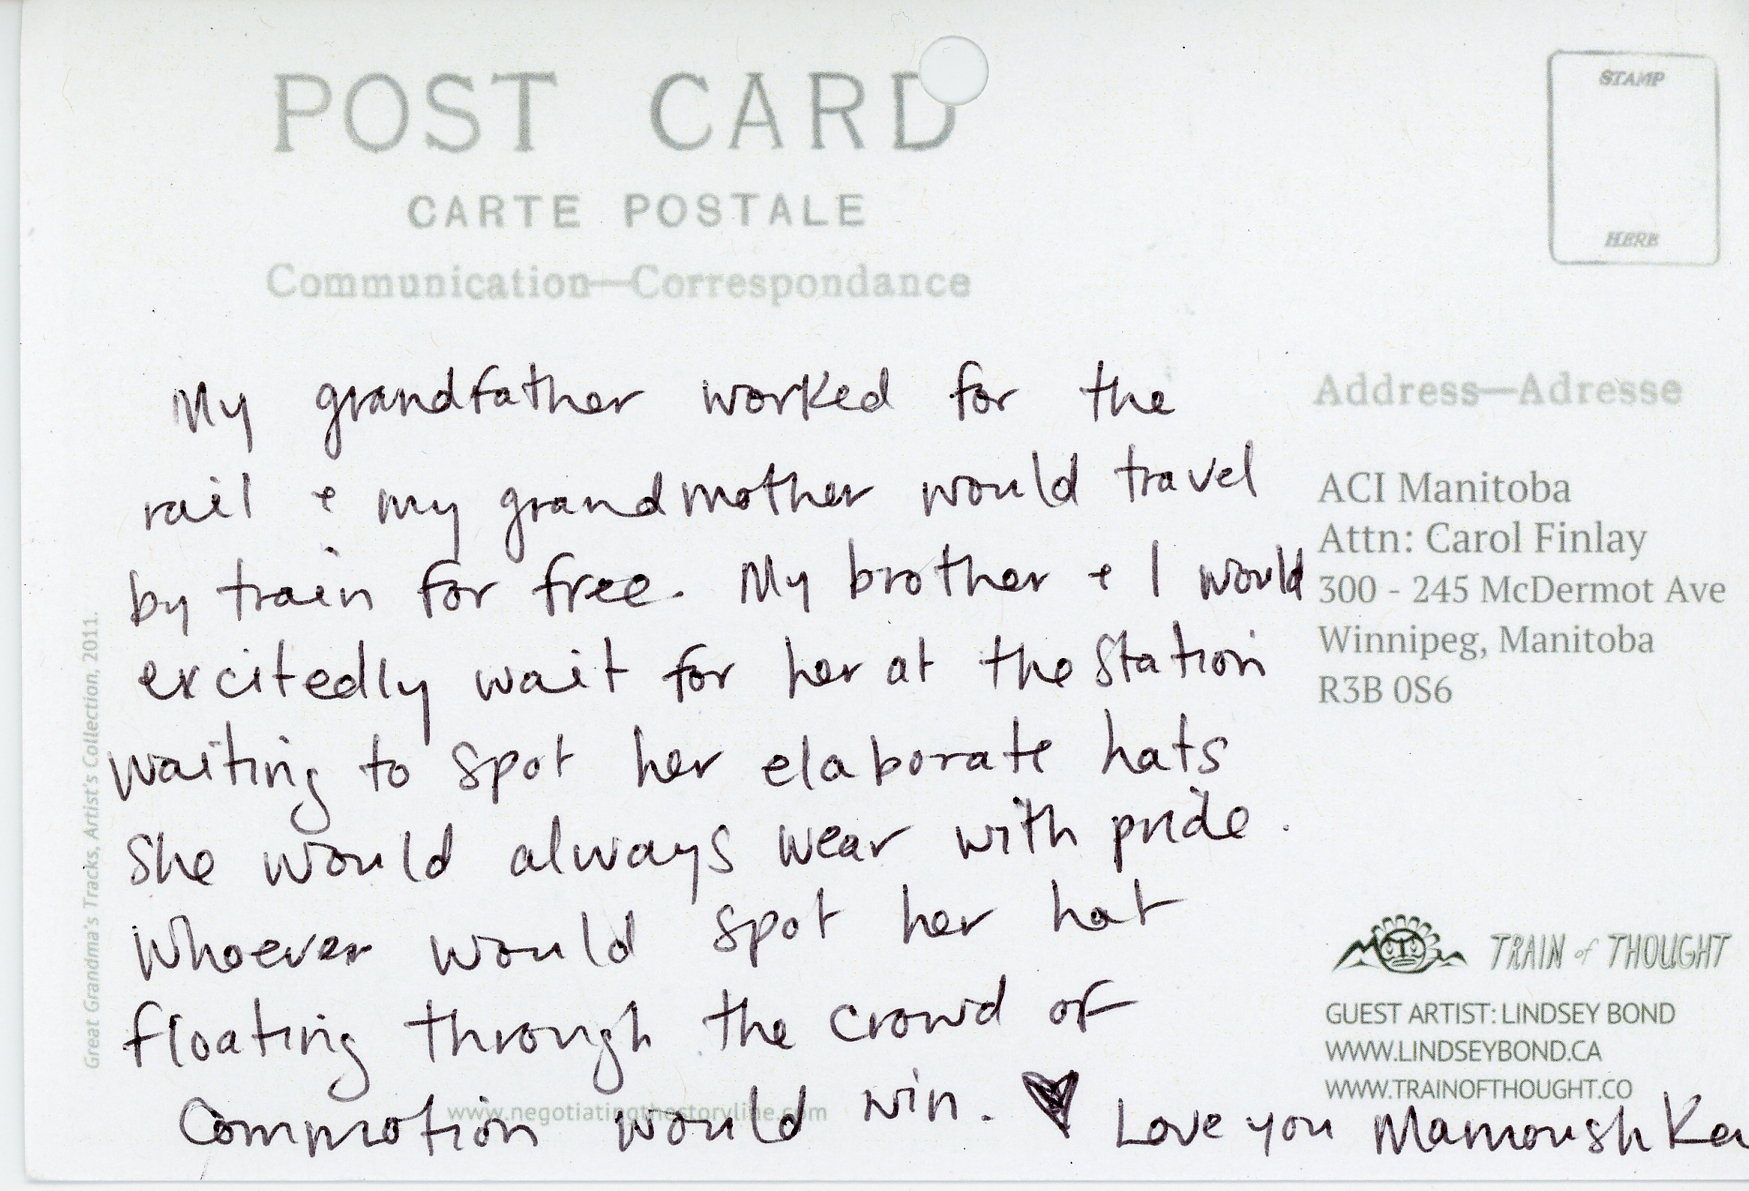 POST CARD
CARTE POSTALE
Communication—Correspondance
STAMP
HERE
My grandfather worked for the
rail + my grandmother would travel
by train for free. My brother + I would
excitedly wait for her at the Station
waiting to spot her elaborate hats
She would always wear with pride.
Whoever would spot her hat
floating through the crowd of
Commotion would win. ♥ Love you Mamoushka
www.negotiatingthestoryline.com
Great Grandma's Tracks, Artist's Collection, 2011.
Address—Adresse
ACI Manitoba
Attn: Carol Finlay
300 - 245 McDermot Ave
Winnipeg, Manitoba
R3B 0S6
TRAIN of THOUGHT
GUEST ARTIST: LINDSEY BOND
WWW.LINDSEYBOND.CA
WWW.TRAINOFTHOUGHT.CO